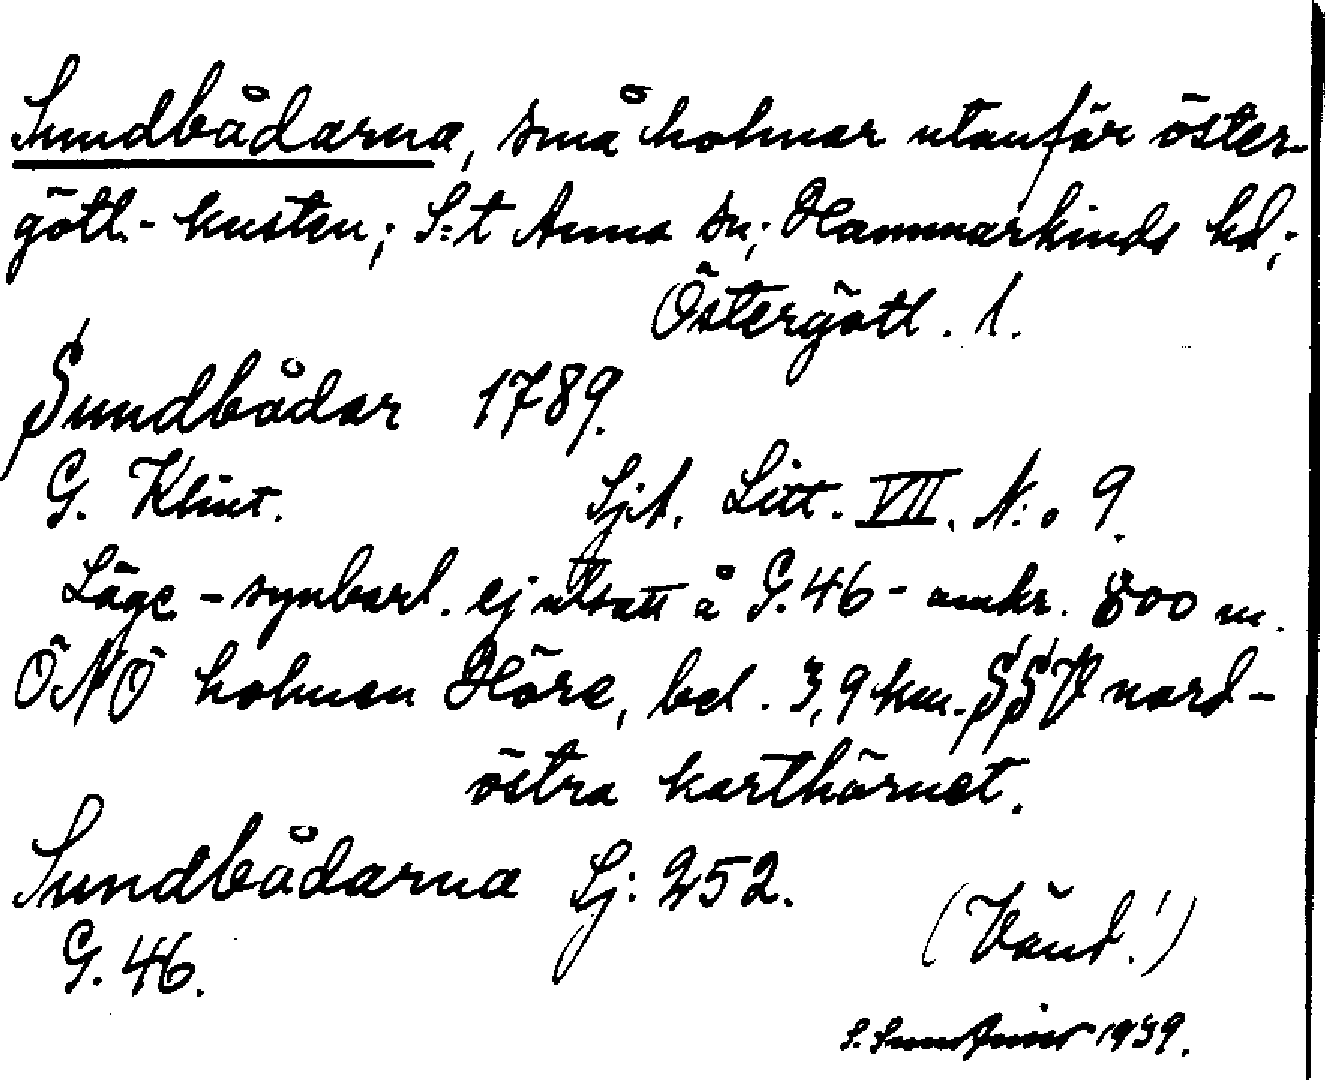 Sundbådarna, små holmar utanför öster-
götl.- kusten; S:t Anna sn; Hammarkinds hd;
Östergötl. l.
Sundbådar 1789.
G. Klint. Sjk. Litt. VII. N:o 9.
Läge - synbarl. ej utsatt å G. 46 - omkr. 800 m.
ÖNÖ holmen Höre, bel. 3,9 km. SSV nord-
östra karthörnet.
Sundbådarna Sj: 252.
G. 46.
(Vänd!)
S. 1939.